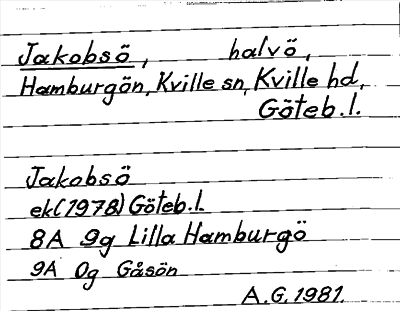 Jakobsö, halvö,
Hamburgön, Kville sn, Kville hd,
Göteb.l.
Jakobsö
ek(1978) Göteb.l.
8A 9g Lilla Hamburgö
9A 0g Gåsön
A.G. 1981.